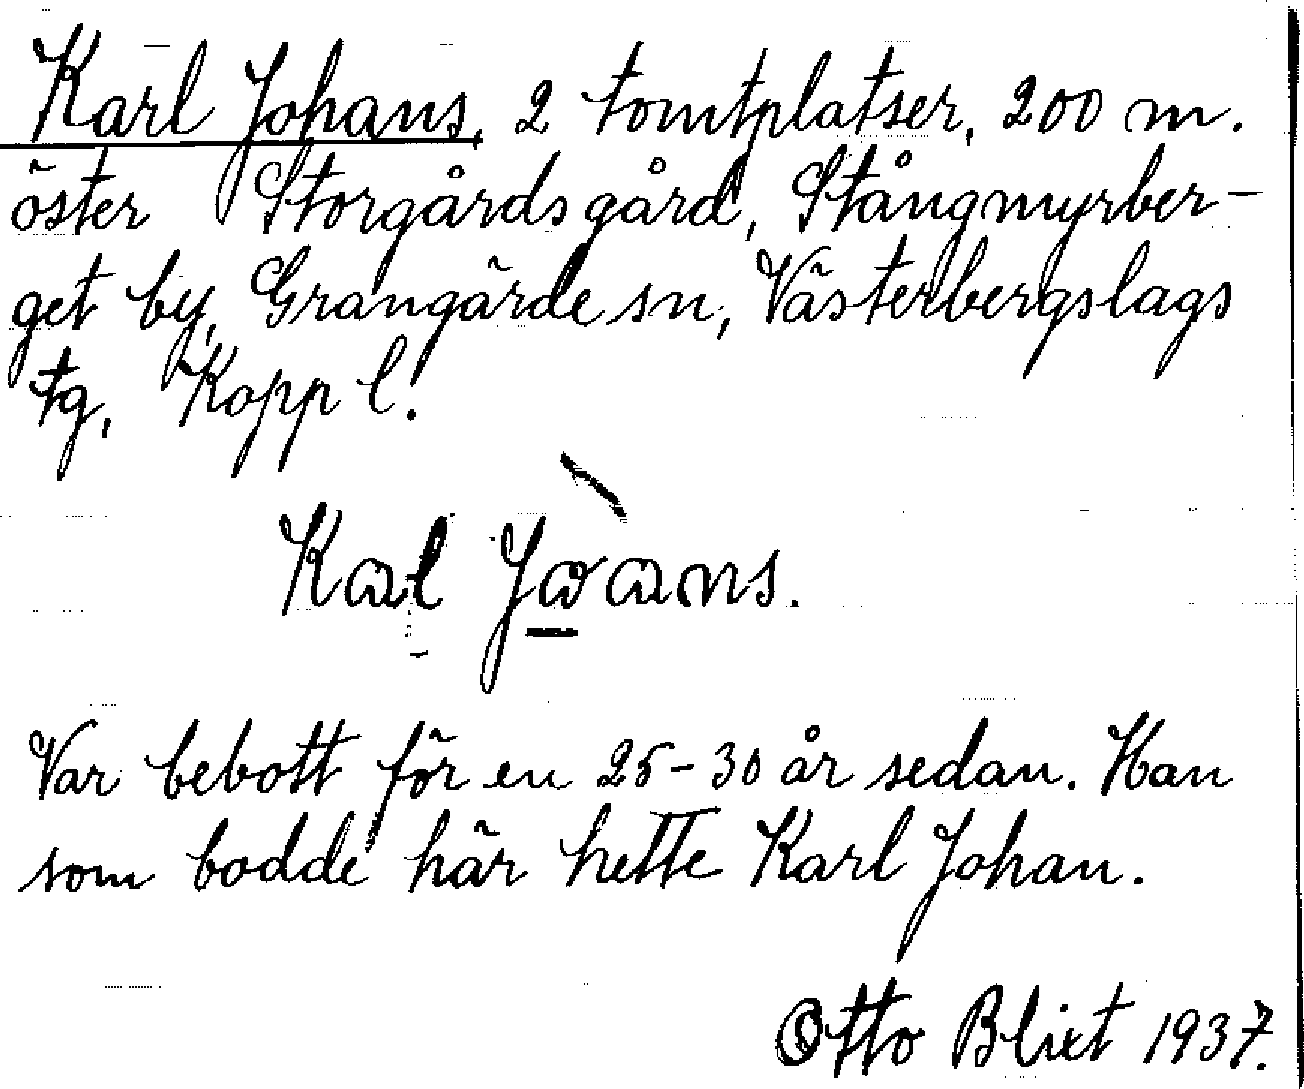 Karl Johans, 2 tomtplatser, 200 m.
öster Storgårdsgård, Stångmyrber-
get by, Grangärde sn, Västerbergslags
fg, Kopp l.
Kal Joans.
Var bebott för en 25-30 år sedan. Han
som bodde här hette Karl Johan.
Otto Blixt 1937.